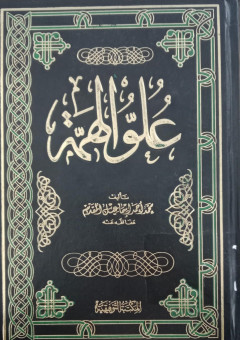 علو الهمة
تأليف
محمد أحمد إسماعيل المقدم
عفا الله عنه
المكتبة التوفيقية